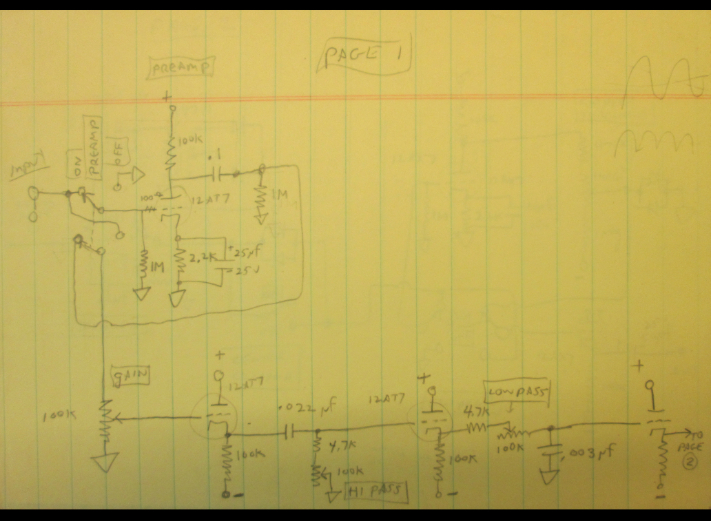 PAGE 1
PREAMP
+
100K
.1
INPUT
ON
PREAMP
OFF
12AT7
1M
1M
2.2K
+ 25µf
25V
GAIN
100K
+
12AT7
100K
-
.022 µf
4.7K
100K
HI PASS
+
12AT7
100K
-
4.7K
LOWPASS
100K
.003 µf
+
TO
PAGE
2